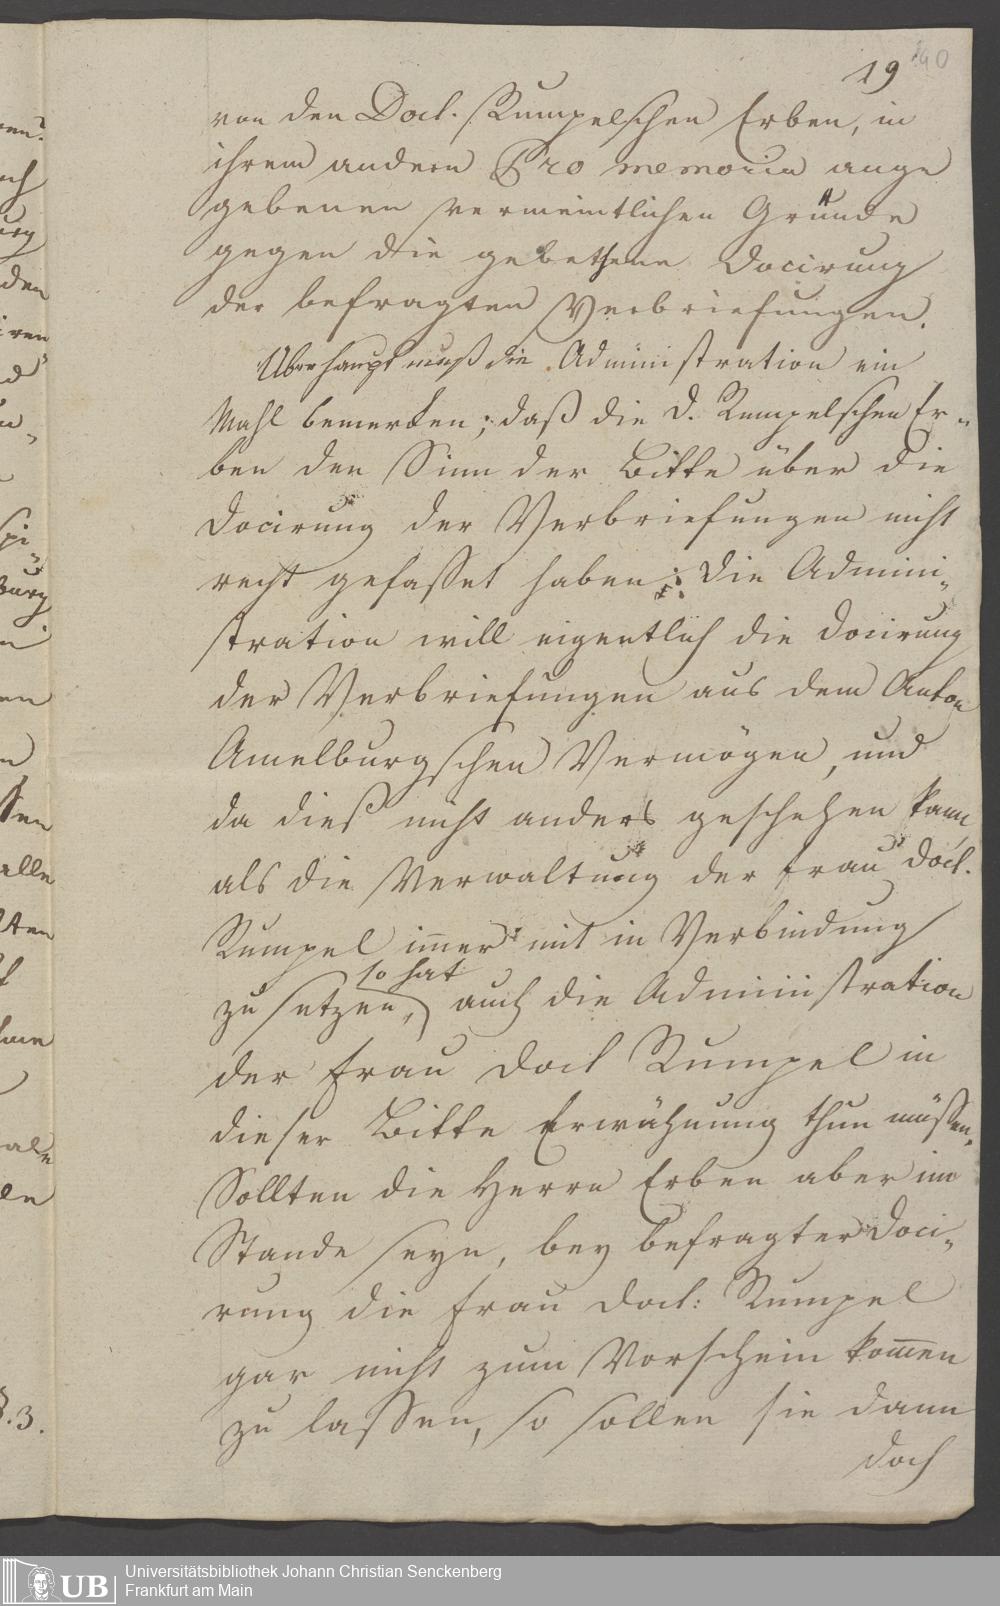 19
40
von den Doct. Rumpelschen Erben, in
ihrem andern Pro memoria ange
gebenen vermeintlichen Gründe
gegen die gebethene Docirung
der befragten Verbriefungen.
Überhaupt muß die Administration ein
Mahl bemerken; daß die D. Rumpelschen Er-
ben den Sinn der Bitte über die
Docirung der Verbriefungen nicht
recht gefasset haben: Die Admini-
stration will eigentlich die Docirung
der Verbriefungen aus dem Anton
Amelburgschen Vermögen, und
da dieß nicht anders geschehen kann,
als die Verwaltung der Frau Doct.
Rumpel immer mit in Verbindung
zu setzen, so hat auch die Administration
der Frau Doct Rumpel in
dieser Bitte Erwähnung thun müssen.
Sollten die Herrn Erben aber im
Stande seyn, bey befragter Doci-
rung die Frau Doct: Rumpel
gar nicht zum Vorschein kom̄en
zu lassen, so sollen sie dann
doch
ch
den
d
en
ssen
alle
§. 3.
UB
Universitätsbibliothek Johann Christian Senckenberg
Frankfurt am Main